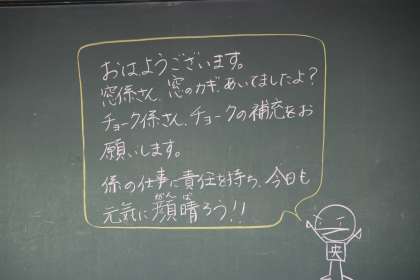 おはようございます。
窓係さん、窓のカギ、あいてましたよ?
チョーク係さん、チョークの補充をお
願いします。
係の仕事に責任を持ち、今日も
元気に顔晴ろう!!
がん ば
央